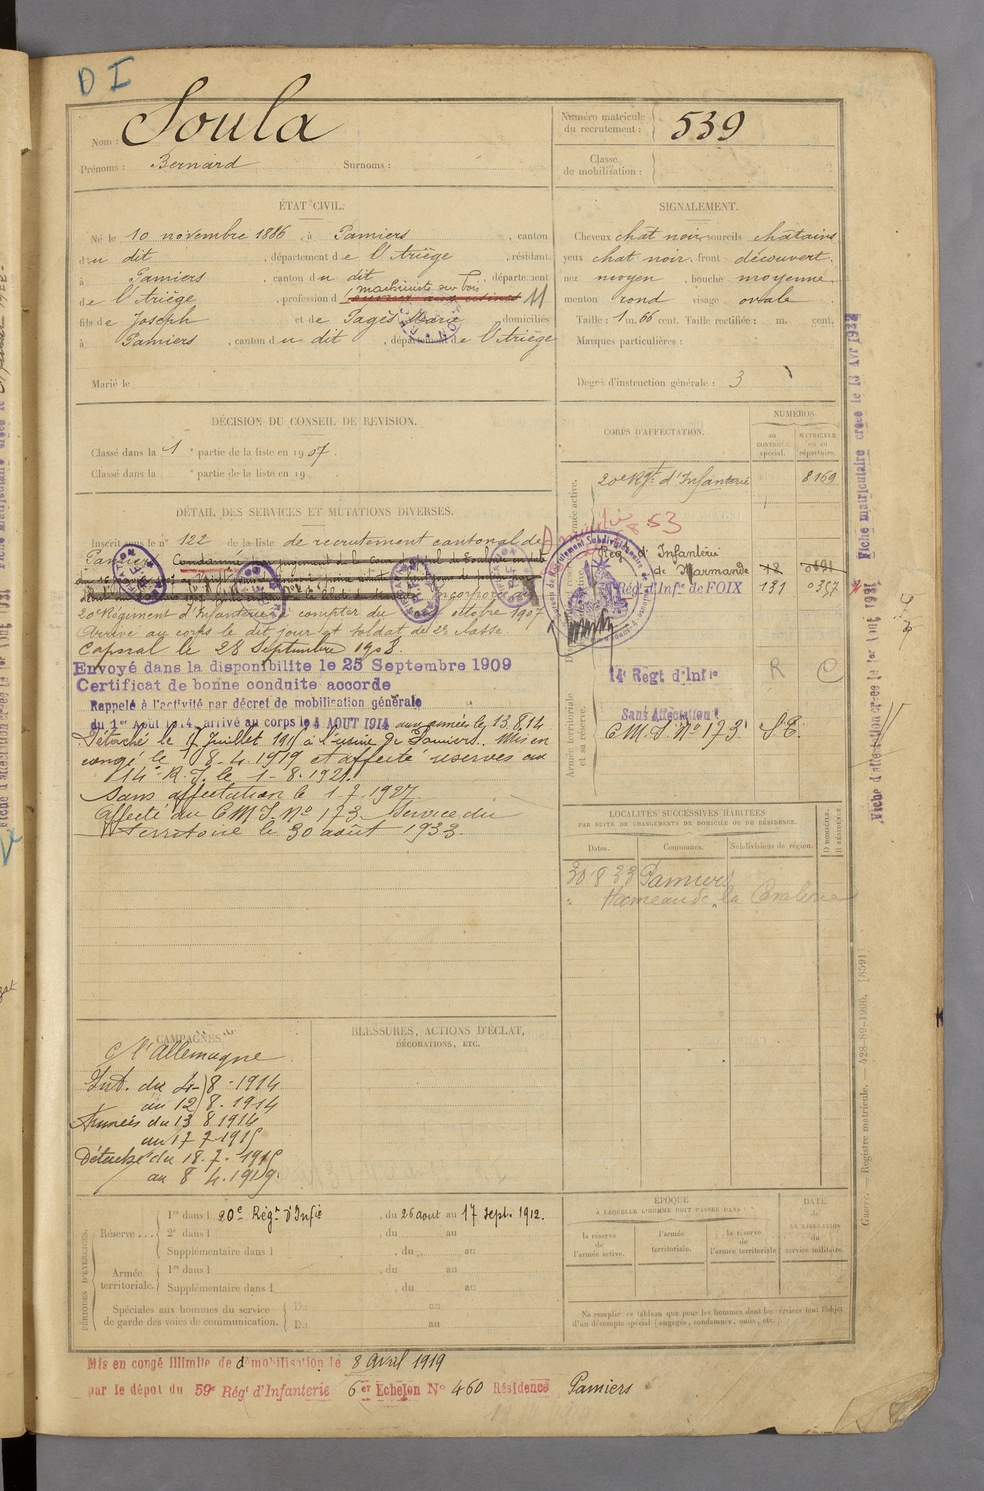 D I
Nom : Soula
Prénoms : Bernard Surnoms :
Numéro matricule du recrutement : 539
Classe de mobilisation :
ÉTAT CIVIL.
Né le 10 novembre 1886, à Pamiers, canton
du dit, département de l'Ariège, résidant
à Pamiers, canton du dit, département
machiniste sur bois
de l'Ariège, profession d 11
fils de Joseph et de Pagès Marie, domiciliés
à Pamiers, canton du dit, département de l'Ariège
Marié le
SIGNALEMENT.
Cheveux chat noir, sourcils chatains
yeux chat noir, front découvert,
nez moyen, bouche moyenne
menton rond visage ovale
Taille : 1 m. 66 cent. Taille rectifiée : m. cent.
Marques particulières :
Degré d'instruction générale : 3
DÉCISION DU CONSEIL DE REVISION.
Classé dans la 1e partie de la liste en 1907
Classé dans la e partie de la liste en 19
DÉTAIL DES SERVICES ET MUTATIONS DIVERSES.
Inscrit sous le n° 122 de la liste de recrutement cantonal de
Pamiers Condamné
Incorporé au
20e Régiment d'Infanterie à compter du octobre 1907
Arrivé au corps le dit jour et soldat de 2e classe
Caporal le 28 Septembre 1908.
Envoyé dans la disponibilite le 25 Septembre 1909
Certificat de bonne conduite accorde
Rappelé à l'activité par décret de mobilisation générale
du 1er Août 1914, arrivé au corps le 4 AOUT 1914 aux armées le 13.8.14
Détaché le 17 Juillet 1915 à l'usine de Pamiers. Mis en
congé le 8-4-1919 et affecté réserves au
14e R.I. le 1-8-1921.
Sans affectation le 1-7-1927
Affecté au C M I N° 173 Service du
Territoire le 30 août 1933.
CORPS D'AFFECTATION.
NUMÉROS
AU CONTRÔLE spécial.
MATRICULE OU AU répertoire.
20e Rgt d'Infanterie 8169
53
Rég. d'Infanterie
de Marmande
Rég. d'Infie de FOIX 131 0357
14e Régt d'Infie R C
Sans Affectation
C.M.I N° 173. S.T.
Armée territoriale et sa réserve.
LOCALITÉS SUCCESSIVES HABITÉES
PAR SUITE DE CHANGEMENTS DE DOMICILE OU DE RÉSIDENCE.
Dates. Communes. Subdivisions de région. D DOMICILE. R RÉSIDENCE.
30 8 33 Pamiers
Hameau de la
CAMPAGNES
C/ l'Allemagne
Int. du 4-8-1914
au 12 8-1914
Armées du 13 8 1914
au 17 7 1915
Détaché du 18.7.1915
au 8 4.1919.
BLESSURES, ACTIONS D'ÉCLAT,
DÉCORATIONS, ETC.
PÉRIODES D'EXERCICES.
Réserve ... 1re dans l 20e Régt d'Infie, du 26 août au 17 Sept. 1912.
2e dans l , du au
Supplémentaire dans l , du au
Armée territoriale. 1re dans l , du au
Supplémentaire dans l , du au
Spéciales aux hommes du service de garde des voies de communication. Du au
Du au
ÉPOQUE
À LAQUELLE L'HOMME DOIT PASSER DANS :
la réserve de l'armée active.
l'armée territoriale.
la réserve de l'armée territoriale
DATE de LA LIBÉRATION du service militaire.
Ne remplir ce tableau que pour les hommes dont les services font l'objet
d'un décompte spécial (engagés, condamnés, omis, etc.).
Mis en congé illimite de démobilisation le 8 avril 1919
par le dépot du 59e Régt d'Infanterie 6er Echelon N° 460 Résidence Pamiers
Fiche matriculaire créée le 13 Avr 1932
Fiche d'affectation créée le 1er Aout 1931
Guerre. Registre matricule. — 428-89-1906. [8591]